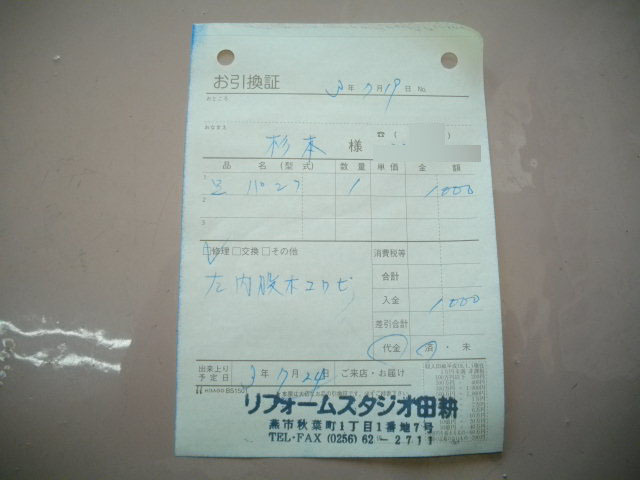 お引換証
3 年 7 月 19 日 No.
おところ
おなまえ
杉本 様
☎ ( )
品 名 (型 式) 数 量 単 価 金 額
1 パンツ 1 1000
2
3
修理 □交換 □その他
左内股ホコロビ
消費税等
合計
入金 1000
差引合計
代金 済・未
出来上り
予定日
3 年 7 月 24 日 ご来店・お届け
リフォームスタジオ田耕
燕市秋葉町1丁目1番地7号
TEL-FAX (0256) 62-2711